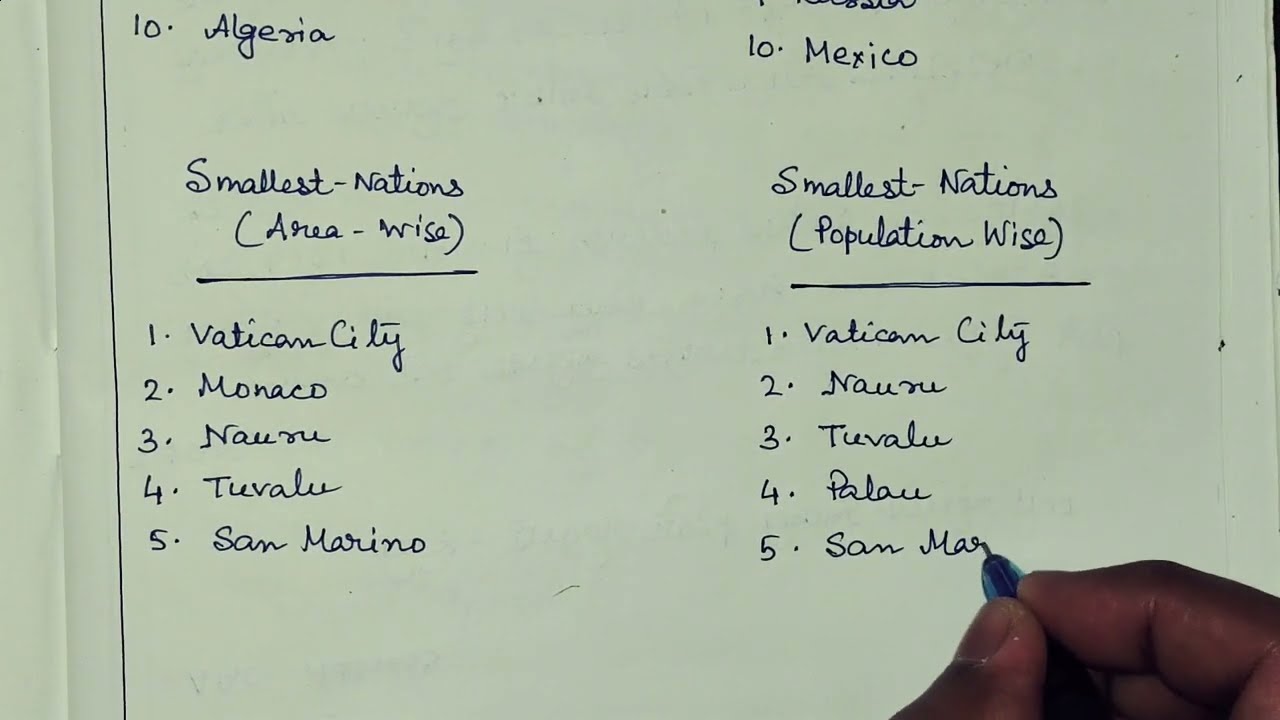 10. Algeria
Russia
10. Mexico
Smallest-Nations
(Area-Wise)
1. Vatican City
2. Monaco
3. Nauru
4. Tuvalu
5. San Marino
Smallest-Nations
(Population Wise)
1. Vatican City
2. Nauru
3. Tuvalu
4. Palau
5. San Mar